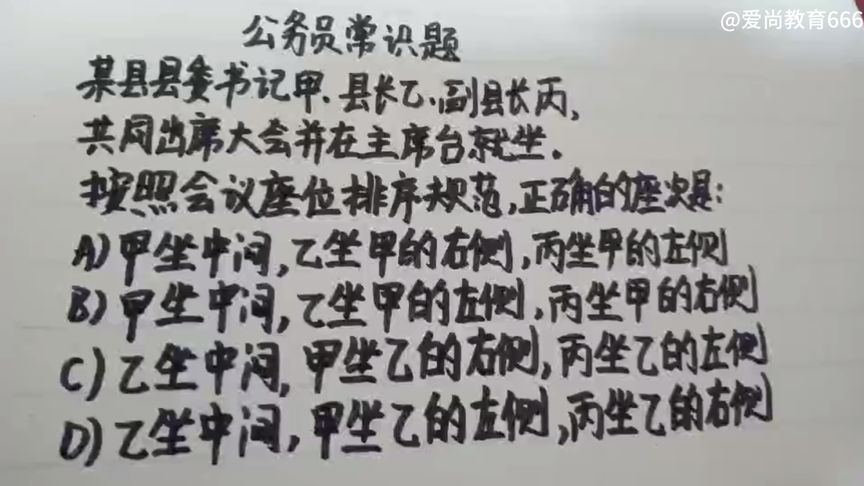 @爱尚教育666
公务员常识题
某县县委书记甲、县长乙、副县长丙,
共同出席大会并在主席台就坐.
按照会议座位排序规范,正确的座次是:
A)甲坐中间,乙坐甲的右侧,丙坐甲的左侧
B)甲坐中间,乙坐甲的左侧,丙坐甲的右侧
C)乙坐中间,甲坐乙的右侧,丙坐乙的左侧
D)乙坐中间,甲坐乙的左侧,丙坐乙的右侧